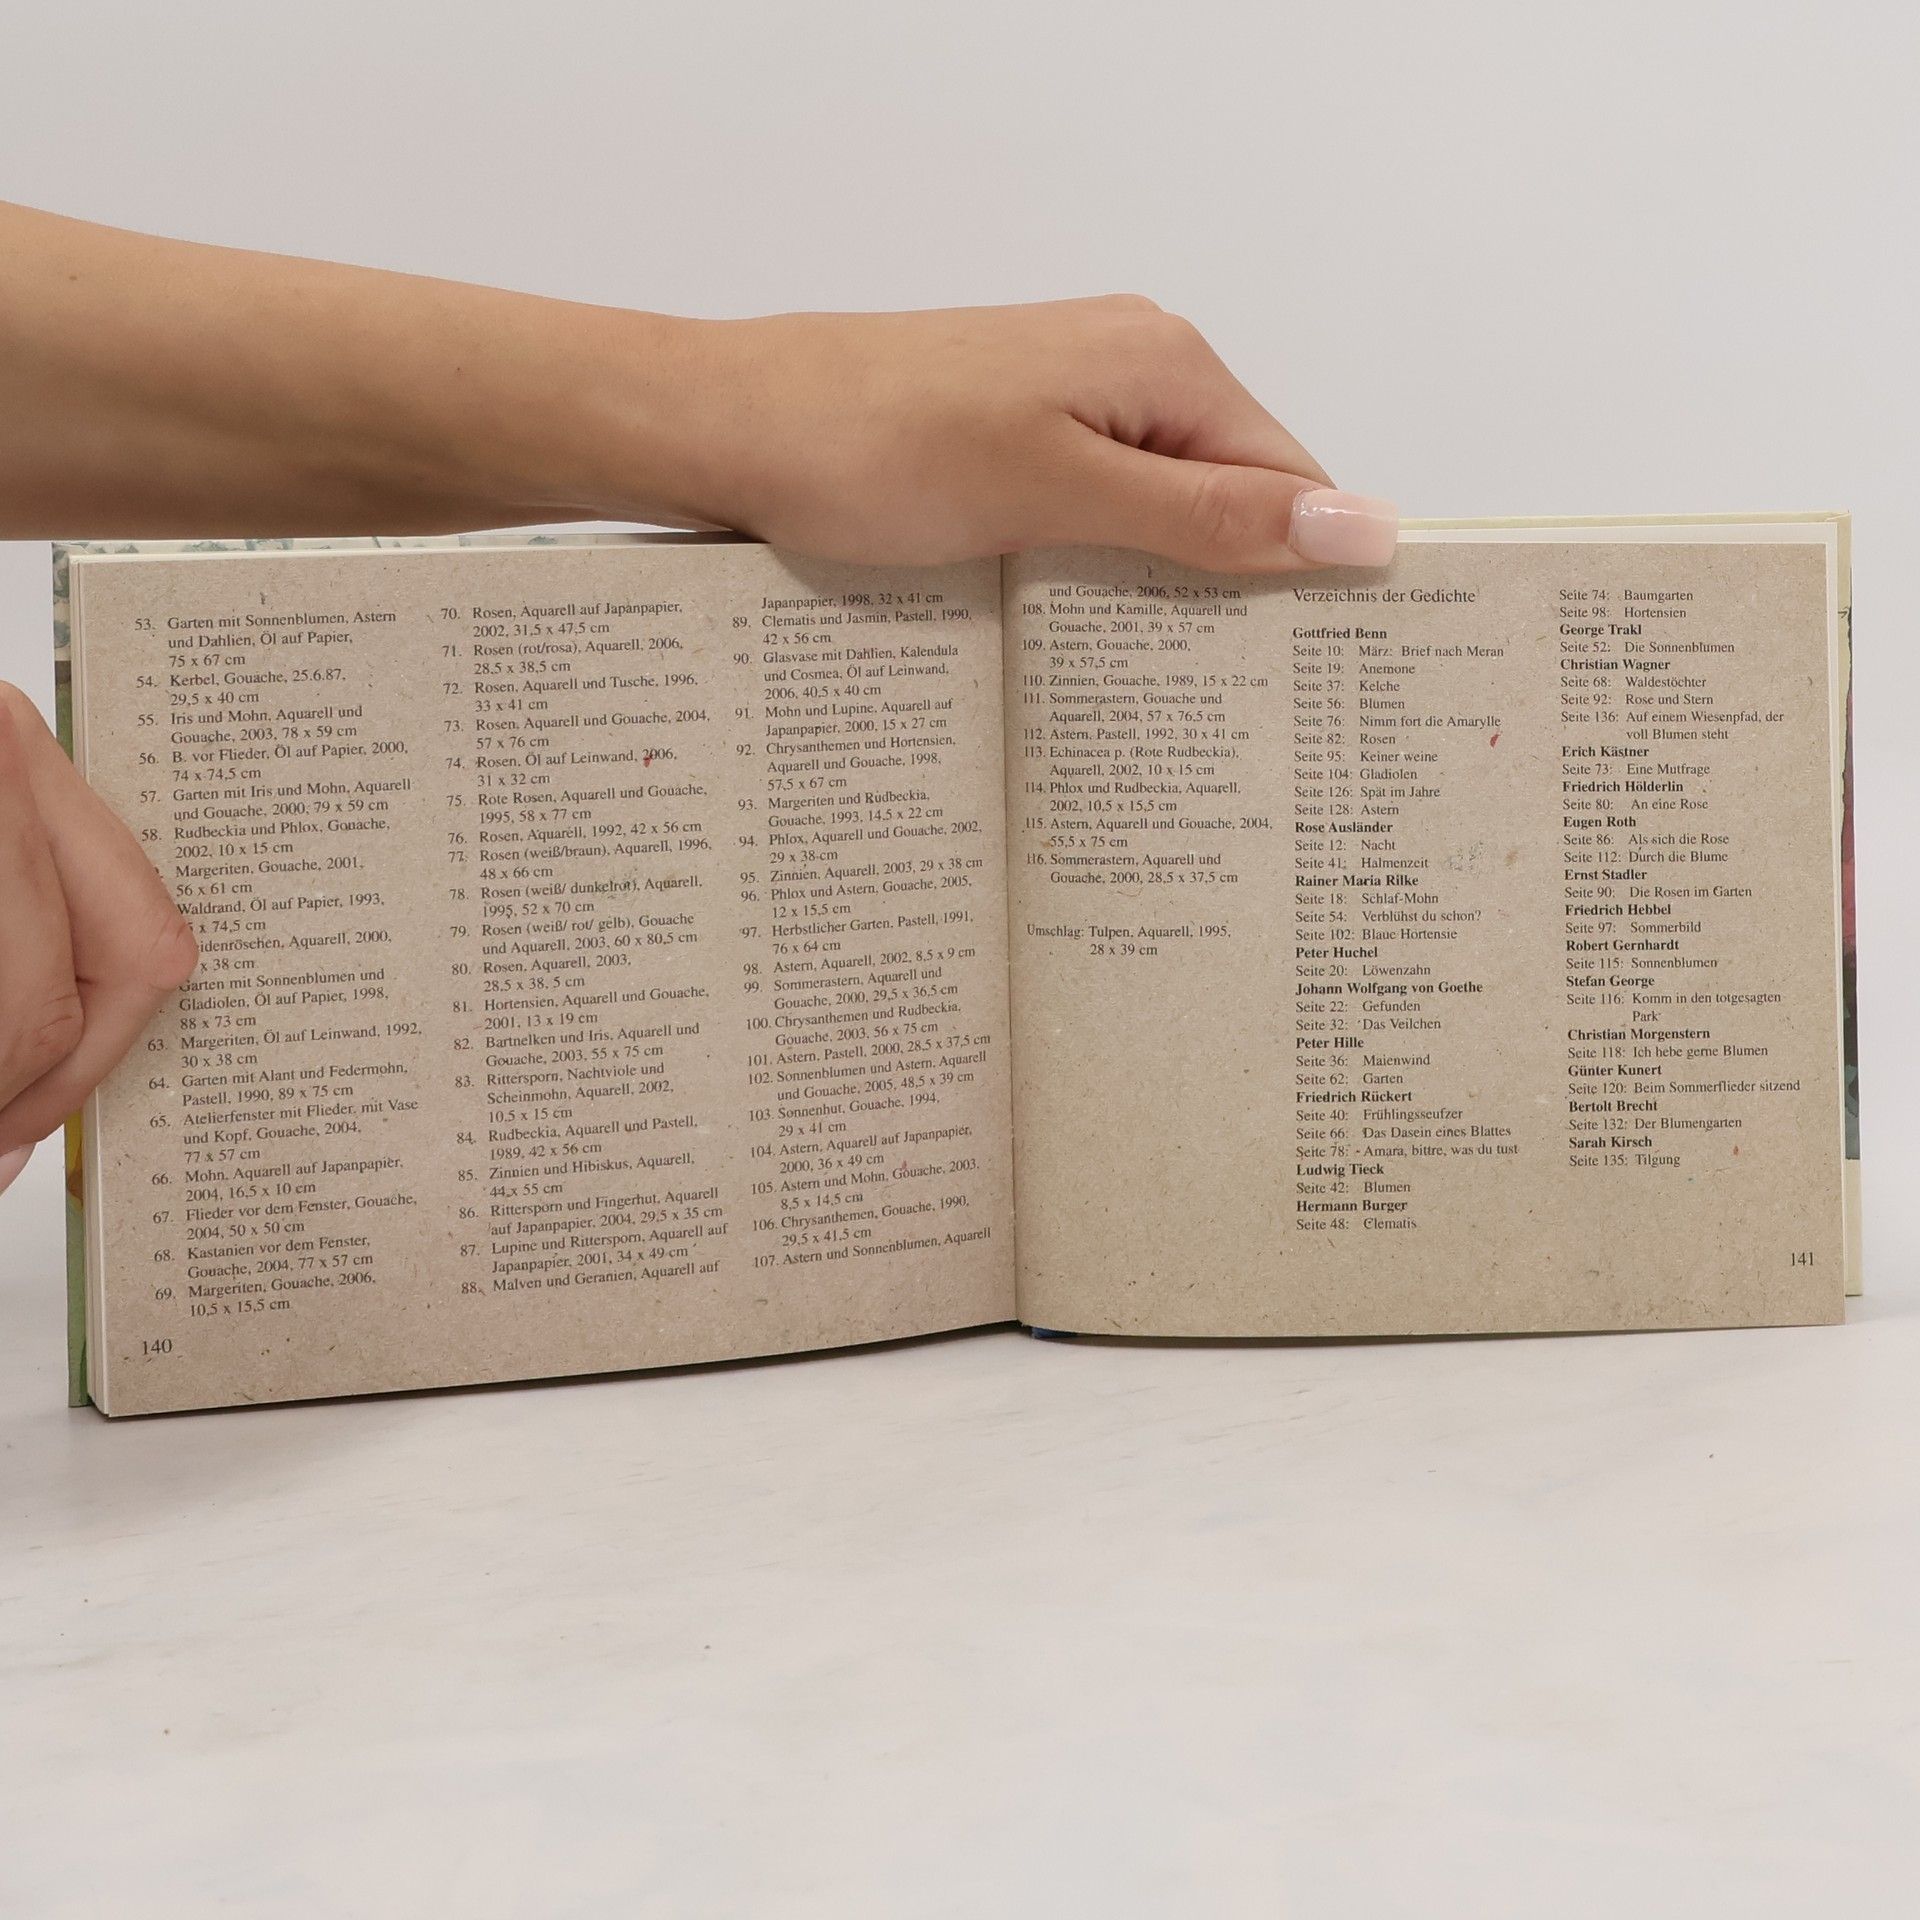 53. Garten mit Sonnenblumen, Astern
und Dahlien, Öl auf Papier,
75 x 67 cm
54. Kerbel, Gouache, 25.6.87,
29,5 x 40 cm
55. Iris und Mohn, Aquarell und
Gouache, 2003, 78 x 59 cm
56. B. vor Flieder, Öl auf Papier, 2000,
74 x 74,5 cm
57. Garten mit Iris und Mohn, Aquarell
und Gouache, 2000, 79 x 59 cm
58. Rudbeckia und Phlox, Gouache,
2002, 10 x 15 cm
Margeriten, Gouache, 2001,
56 x 61 cm
Waldrand, Öl auf Papier, 1993,
x 74,5 cm
idenröschen, Aquarell, 2000,
x 38 cm
Garten mit Sonnenblumen und
Gladiolen, Öl auf Papier, 1998,
88 x 73 cm
63. Margeriten, Öl auf Leinwand, 1992,
30 x 38 cm
64. Garten mit Alant und Federmohn,
Pastell, 1990, 89 x 75 cm
65. Atelierfenster mit Flieder, mit Vase
und Kopf, Gouache, 2004,
77 x 57 cm
66. Mohn, Aquarell auf Japanpapier,
2004, 16,5 x 10 cm
67. Flieder vor dem Fenster, Gouache,
2004, 50 x 50 cm
68. Kastanien vor dem Fenster,
Gouache, 2004, 77 x 57 cm
69. Margeriten, Gouache, 2006,
10,5 x 15,5 cm
140
70. Rosen, Aquarell auf Japanpapier,
2002, 31,5 x 47,5 cm
71. Rosen (rot/rosa), Aquarell, 2006,
28,5 x 38,5 cm
72. Rosen, Aquarell und Tusche, 1996,
33 x 41 cm
73. Rosen, Aquarell und Gouache, 2004,
57 x 76 cm
74. Rosen, Öl auf Leinwand, 2006,
31 x 32 cm
75. Rote Rosen, Aquarell und Gouache,
1995, 58 x 77 cm
76. Rosen, Aquarell, 1992, 42 x 56 cm
77. Rosen (weiß/braun), Aquarell, 1996,
48 x 66 cm
78. Rosen (weiß/ dunkelrot), Aquarell,
1995, 52 x 70 cm
79. Rosen (weiß/ rot/ gelb), Gouache
und Aquarell, 2003, 60 x 80,5 cm
80. Rosen, Aquarell, 2003,
28,5 x 38, 5 cm
81. Hortensien, Aquarell und Gouache,
2001, 13 x 19 cm
82. Bartnelken und Iris, Aquarell und
Gouache, 2003, 55 x 75 cm
83. Rittersporn, Nachtviole und
Scheinmohn, Aquarell, 2002,
10,5 x 15 cm
84. Rudbeckia, Aquarell und Pastell,
1989, 42 x 56 cm
85. Zinnien und Hibiskus, Aquarell,
44 x 55 cm
86. Rittersporn und Fingerhut, Aquarell
auf Japanpapier, 2004, 29,5 x 35 cm
87. Lupine und Rittersporn, Aquarell auf
Japanpapier, 2001, 34 x 49 cm
88. Malven und Geranien, Aquarell auf
Japanpapier, 1998, 32 x 41 cm
89. Clematis und Jasmin, Pastell, 1990,
42 x 56 cm
90. Glasvase mit Dahlien, Kalendula
und Cosmea, Öl auf Leinwand,
2006, 40,5 x 40 cm
91. Mohn und Lupine, Aquarell auf
Japanpapier, 2000, 15 x 27 cm
92. Chrysanthemen und Hortensien,
Aquarell und Gouache, 1998,
57,5 x 67 cm
93. Margeriten und Rudbeckia,
Gouache, 1993, 14,5 x 22 cm
94. Phlox, Aquarell und Gouache, 2002,
29 x 38 cm
95. Zinnien, Aquarell, 2003, 29 x 38 cm
96. Phlox und Astern, Gouache, 2005,
12 x 15,5 cm
97. Herbstlicher Garten, Pastell, 1991,
76 x 64 cm
98. Astern, Aquarell, 2002, 8,5 x 9 cm
99. Sommerastern, Aquarell und
Gouache, 2000, 29,5 x 36,5 cm
100. Chrysanthemen und Rudbeckia,
Gouache, 2003, 56 x 75 cm
101. Astern, Pastell, 2000, 28,5 x 37,5 cm
102. Sonnenblumen und Astern, Aquarell
und Gouache, 2005, 48,5 x 39 cm
103. Sonnenhut, Gouache, 1994,
29 x 41 cm
104. Astern, Aquarell auf Japanpapier,
2000, 36 x 49 cm
105. Astern und Mohn, Gouache, 2003,
8,5 x 14,5 cm
106. Chrysanthemen, Gouache, 1990,
29,5 x 41,5 cm
107. Astern und Sonnenblumen, Aquarell
und Gouache, 2006, 52 x 53 cm
108. Mohn und Kamille, Aquarell und
Gouache, 2001, 39 x 57 cm
109. Astern, Gouache, 2000,
39 x 57,5 cm
110. Zinnien, Gouache, 1989, 15 x 22 cm
111. Sommerastern, Gouache und
Aquarell, 2004, 57 x 76,5 cm
112. Astern, Pastell, 1992, 30 x 41 cm
113. Echinacea p. (Rote Rudbeckia),
Aquarell, 2002, 10 x 15 cm
114. Phlox und Rudbeckia, Aquarell,
2002, 10,5 x 15,5 cm
115. Astern, Aquarell und Gouache, 2004,
55,5 x 75 cm
116. Sommerastern, Aquarell und
Gouache, 2000, 28,5 x 37,5 cm
Umschlag: Tulpen, Aquarell, 1995,
28 x 39 cm
Verzeichnis der Gedichte
Gottfried Benn
Seite 10: März: Brief nach Meran
Seite 19: Anemone
Seite 37: Kelche
Seite 56: Blumen
Seite 76: Nimm fort die Amarylle
Seite 82: Rosen
Seite 95: Keiner weine
Seite 104: Gladiolen
Seite 126: Spät im Jahre
Seite 128: Astern
Rose Ausländer
Seite 12: Nacht
Seite 41: Halmenzeit
Rainer Maria Rilke
Seite 18: Schlaf-Mohn
Seite 54: Verblühst du schon?
Seite 102: Blaue Hortensie
Peter Huchel
Seite 20: Löwenzahn
Johann Wolfgang von Goethe
Seite 22: Gefunden
Seite 32: Das Veilchen
Peter Hille
Seite 36: Maienwind
Seite 62: Garten
Friedrich Rückert
Seite 40: Frühlingsseufzer
Seite 66: Das Dasein eines Blattes
Seite 78: Amara, bittre, was du tust
Ludwig Tieck
Seite 42: Blumen
Hermann Burger
Seite 48: Clematis
Seite 74: Baumgarten
Seite 98: Hortensien
George Trakl
Seite 52: Die Sonnenblumen
Christian Wagner
Seite 68: Waldestöchter
Seite 92: Rose und Stern
Seite 136: Auf einem Wiesenpfad, der
voll Blumen steht
Erich Kästner
Seite 73: Eine Mutfrage
Friedrich Hölderlin
Seite 80: An eine Rose
Eugen Roth
Seite 86: Als sich die Rose
Seite 112: Durch die Blume
Ernst Stadler
Seite 90: Die Rosen im Garten
Friedrich Hebbel
Seite 97: Sommerbild
Robert Gernhardt
Seite 115: Sonnenblumen
Stefan George
Seite 116: Komm in den totgesagten
Park
Christian Morgenstern
Seite 118: Ich hebe gerne Blumen
Günter Kunert
Seite 120: Beim Sommerflieder sitzend
Bertolt Brecht
Seite 132: Der Blumengarten
Sarah Kirsch
Seite 135: Tilgung
141